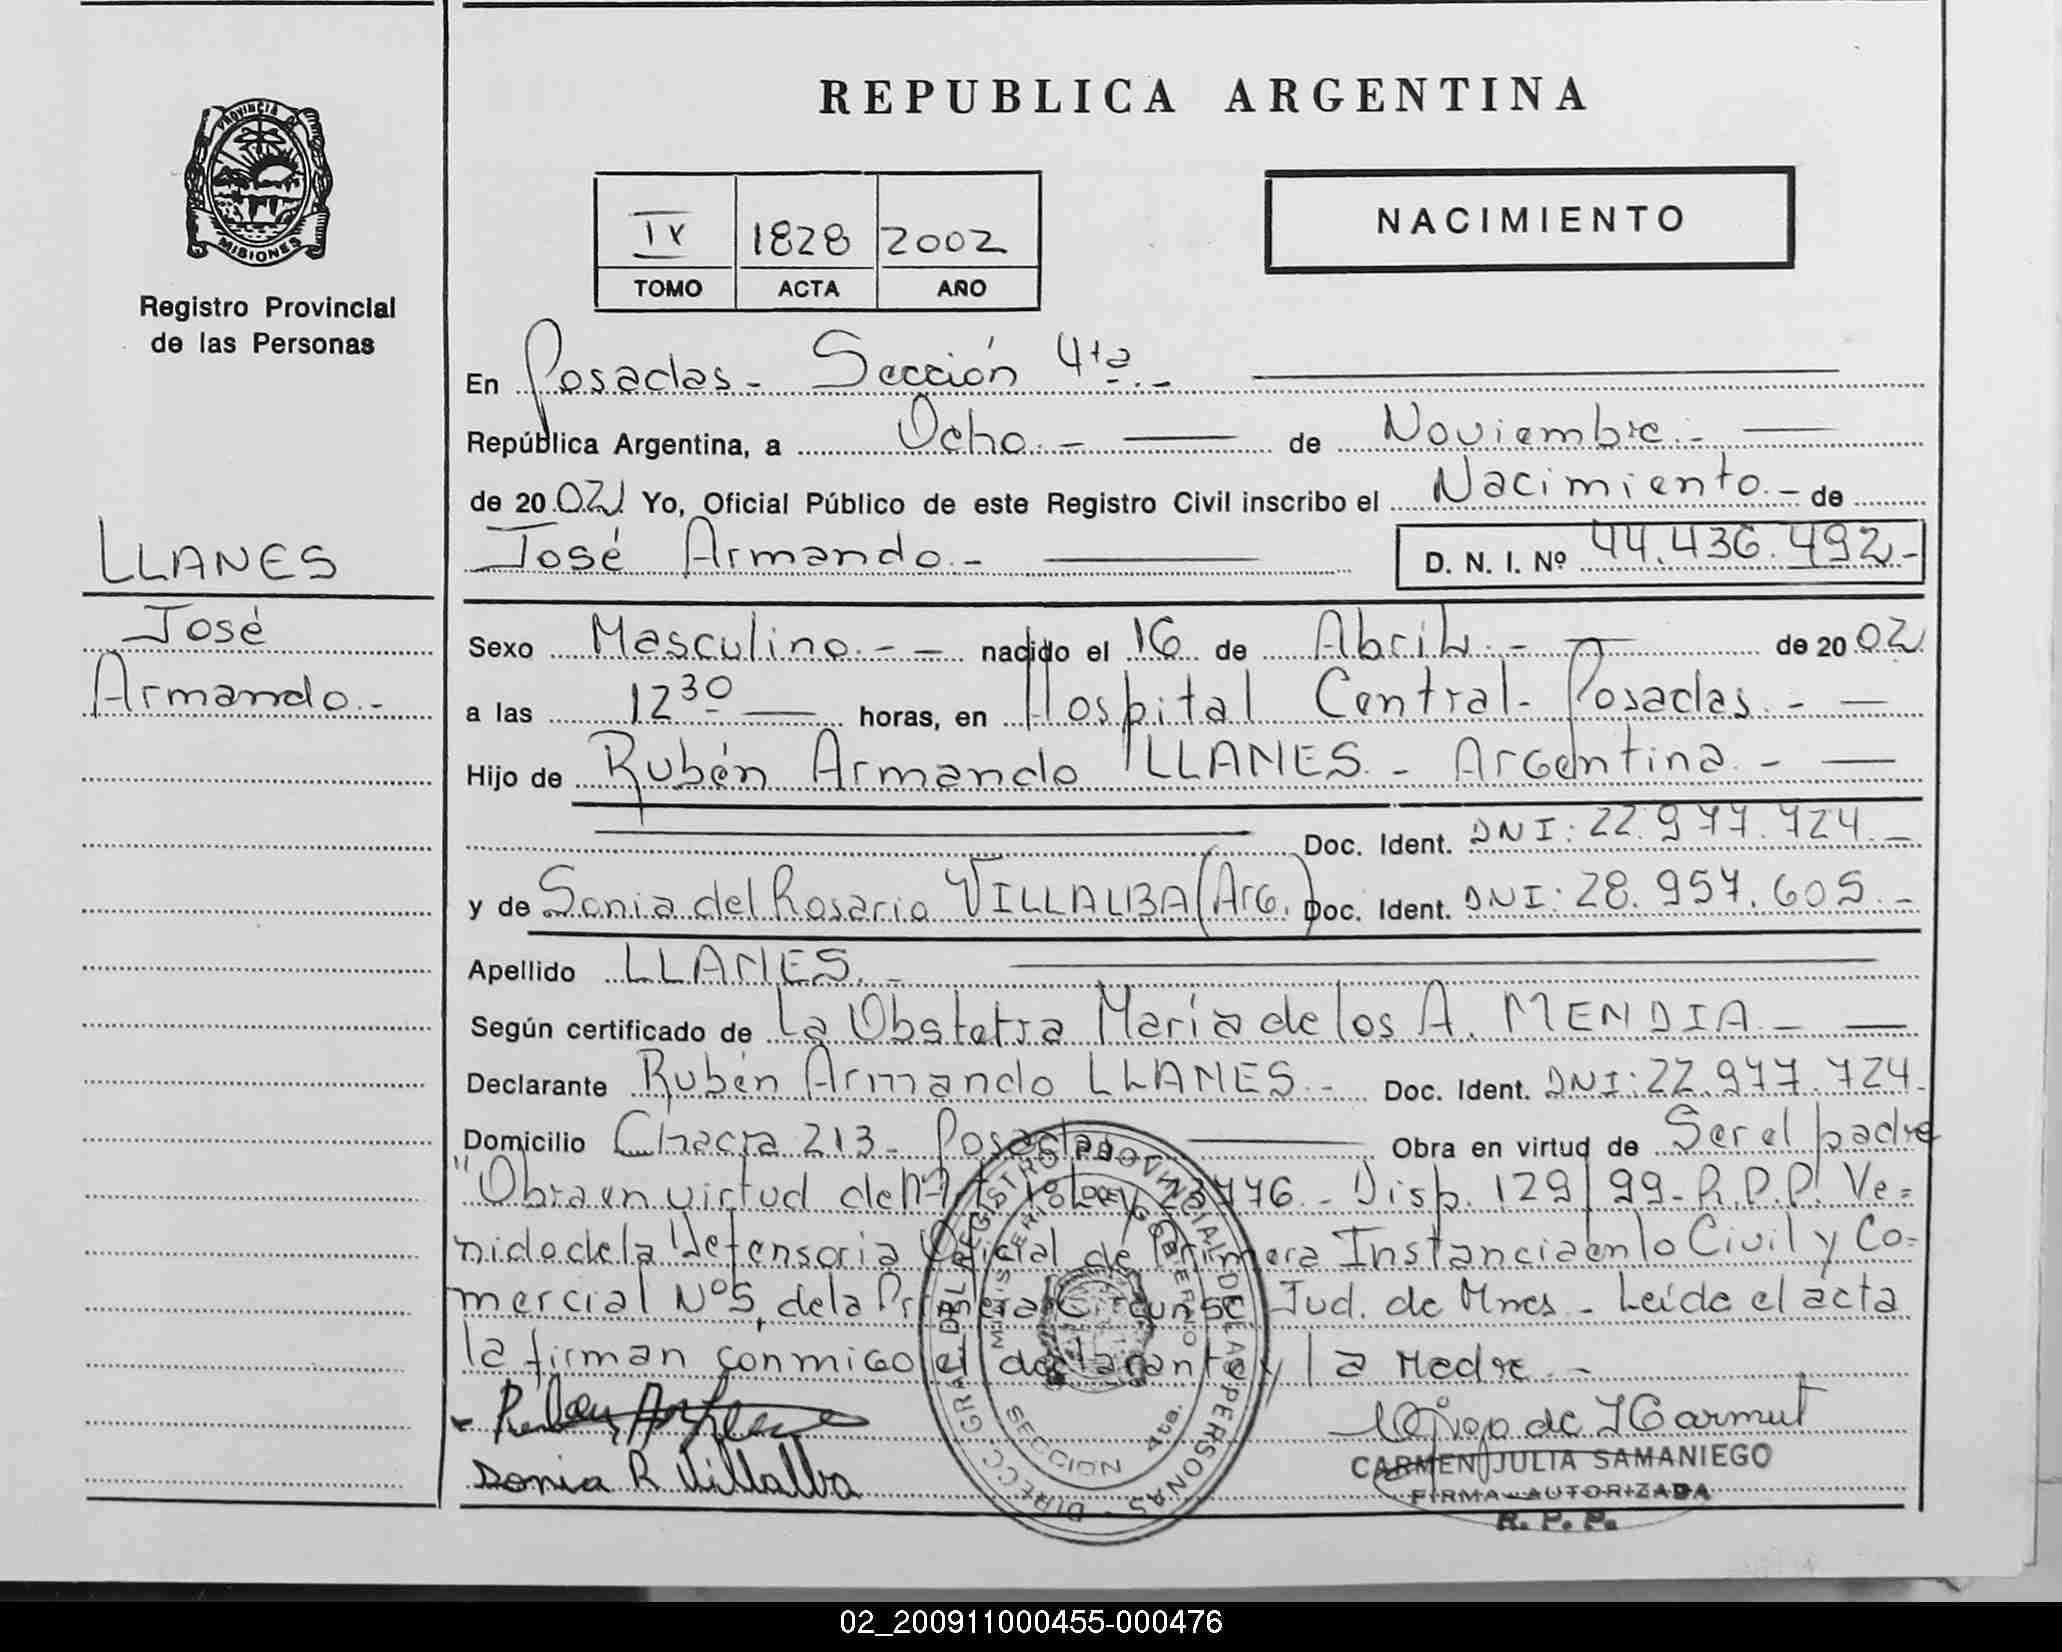 REPUBLICA ARGENTINA
PROVINCIA DE
MISIONES
Registro Provincial
de las Personas
IV 1828 2002
TOMO ACTA AÑO
NACIMIENTO
LLANES
José
Armando.-
En Posadas - Sección 4ta.-
República Argentina, a Ocho.- de Noviembre.-
de 2002 Yo, Oficial Público de este Registro Civil inscribo el Nacimiento.- de
José Armando.- D. N. I. Nº 44.436.492-
Sexo Masculino.-- nacido el 16 de Abril.- de 2002
a las 12 30 horas, en Hospital Central - Posadas.-
Hijo de Rubén Armando LLANES.- Argentina.-
Doc. Ident. DNI: 22.977.724.-
y de Sonia del Rosario VILLALBA (Arg.) Doc. Ident. DNI: 28.957.605.-
Apellido LLANES.-
Según certificado de La Obstetra María de los A. MENDIA.-
Declarante Rubén Armando LLANES.- Doc. Ident. DNI: 22.977.724.-
Domicilio Chacra 213 - Posadas Obra en virtud de Ser el padre
"Obra en virtud del 18 Ley 23776.- Disp. 129/99 - R.P.P. Ve=
nido de la Defensoria Oficial de Primera Instancia en lo Civil y Co=
mercial Nº5, de la Primera Circunsc. Jud. de Mnes - Leída el acta
la firman conmigo el declarante y la Madre.-
Sonia R Villalba
CARMEN JULIA SAMANIEGO
FIRMA AUTORIZADA
R. P. P.
DIRECC. GRAL. DEL REGISTRO PROVINCIAL DE LAS PERSONAS
MINISTERIO DE GOBIERNO
SECCION 4ta.
02_200911000455-000476